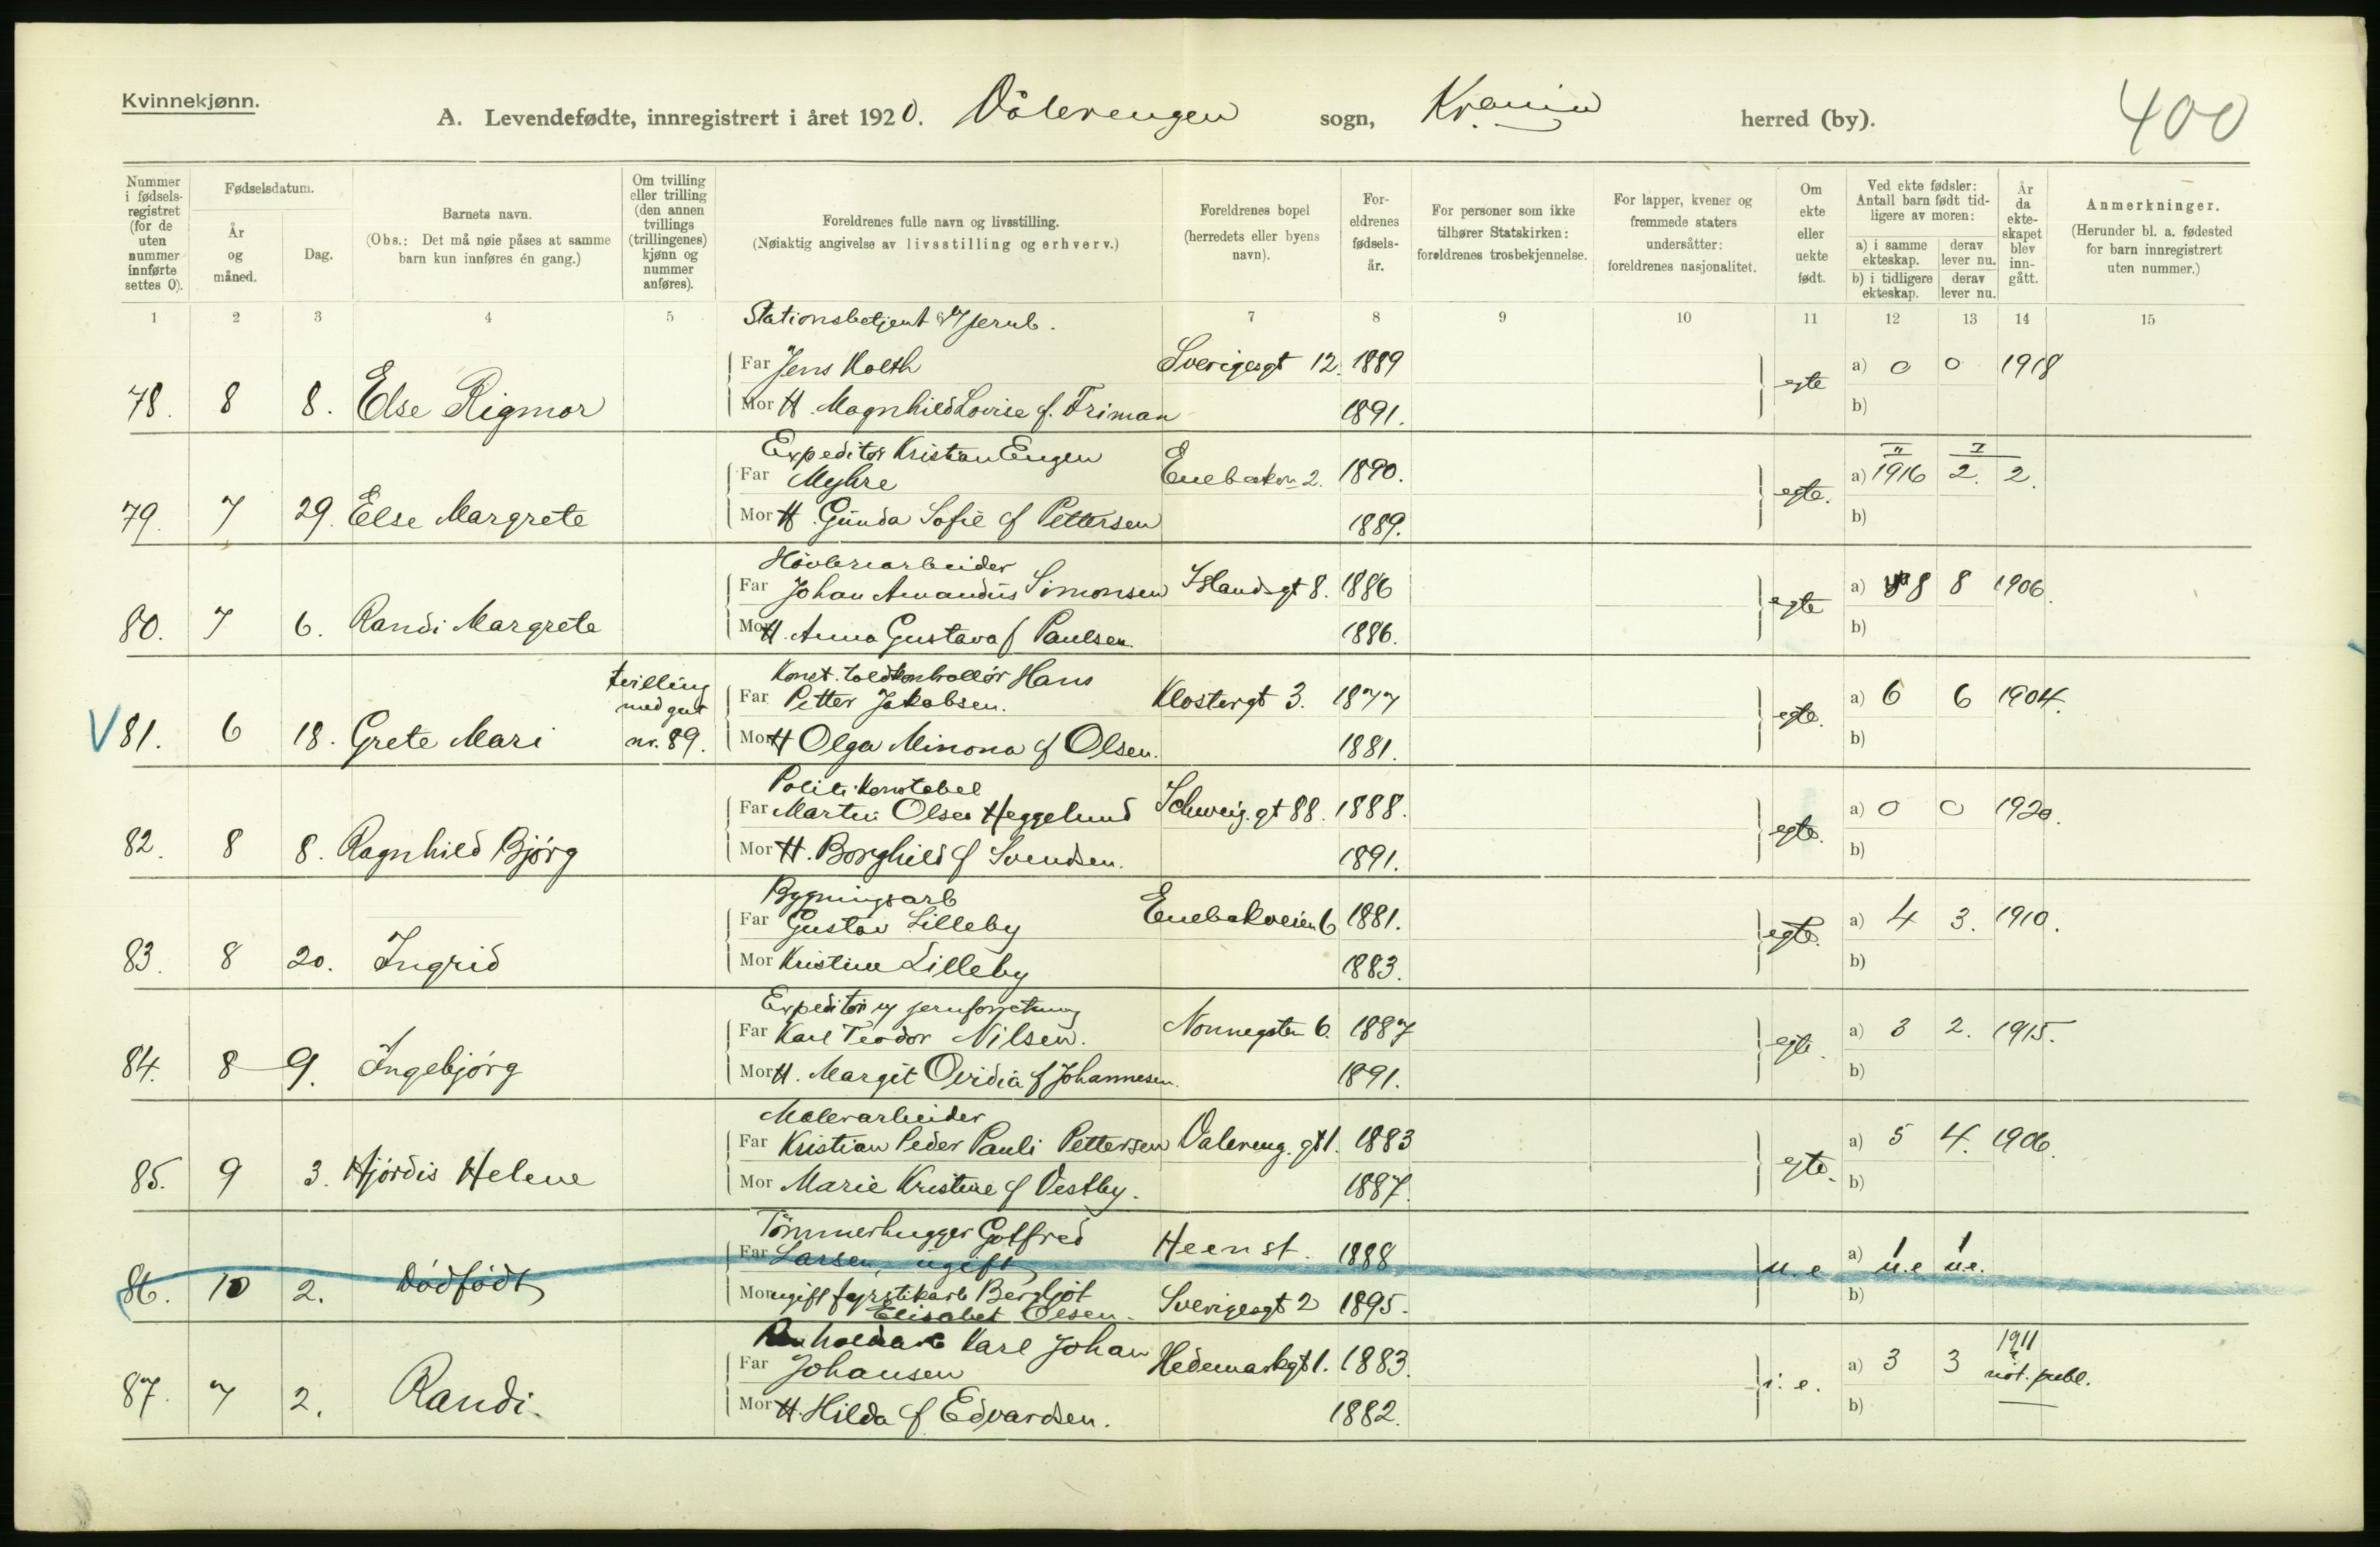 Kvinnekjønn.
A. Levendefødte, innregistrert i året 1920. Vålerengen sogn, Krania herred (by).
400
Nummer i fødselsregistret (for de uten nummer innførte settes 0).
Fødselsdatum.
År og måned.
Dag.
Barnets navn.
(Obs.: Det må nøie påses at samme barn kun innføres én gang.)
Om tvilling eller trilling (den annen tvillings (trillingenes) kjønn og nummer anføres).
Foreldrenes fulle navn og livsstilling.
(Nøiaktig angivelse av livsstilling og erhverv.)
Foreldrenes bopel (herredets eller byens navn).
Foreldrenes fødselsår.
For personer som ikke tilhører Statskirken: foreldrenes trosbekjennelse.
For lapper, kvener og fremmede staters undersåtter: foreldrenes nasjonalitet.
Om ekte eller uekte født.
Ved ekte fødsler: Antall barn født tidligere av moren:
a) i samme ekteskap. derav lever nu.
b) i tidligere ekteskap. derav lever nu.
År da ekteskapet blev inngått.
Anmerkninger.
(Herunder bl. a. fødested for barn innregistrert uten nummer.)
1 2 3 4 5 7 8 9 10 11 12 13 14 15
Stationsbetjent v/ jernb.
Far Jens Kolth Sverigesgt 12. 1889 a) 0 0 1918
78. 8 8. Else Rigmor egte
Mor H. Magnhild Lovise f. Friman 1891. b)
Expeditør Kristian Eugen
Far Myhre Enebakvn 2. 1890. a) 1916 2. 2.
79. 7 29. Else Margrete egte.
Mor H. Gunda Sofie f Pettersen 1889. b)
Høvleriarbeider
Far Johan Amandus Simonsen Islandsgt 8. 1886 a) 8 8 1906.
80. 7 6. Randi Margrete egte
Mor H. Anna Gustava f Paulsen. 1886. b)
Konst. toldkontrollør Hans
Far Petter Jakobsen. Klostergt 3. 1877 a) 6 6 1904.
V 81. 6 18. Grete Mari tvilling med gut nr. 89. egte.
Mor H Olga Minona f Olsen. 1881. b)
Politikonstabel
Far Martin Olsen Heggelund Schweig. gt 88. 1888. a) 0 0 1920.
82. 8 8. Ragnhild Bjørg egte.
Mor H. Borghild f Svendsen. 1891. b)
Bygningsarb
Far Gustav Lilleby Enebakveien 6 1881. a) 4 3. 1910.
83. 8 20. Ingrid egte.
Mor Kristine Lilleby 1883. b)
Expeditør i jernforretning
Far Karl Teodor Nilsen. Nonnegaten 6. 1887 a) 3 2. 1915.
84. 8 9. Ingebjørg egte.
Mor H. Margit Ovidia f Johannesen. 1891. b)
Malerarbeider
Far Kristian Peder Pauli Pettersen Valereng. gt 1. 1883 a) 5 4. 1906.
85. 9 3. Hjørdis Helene egte.
Mor Marie Kristine f Vestby. 1887. b)
Tømmerhugger Gotfred
Far Larsen, ugift Heen st. 1888 a) 1 u.e 1 u.e.
86. 10 2. Dødfødt u.e
Mor ugift fyrstikarb Bergljot
Elisabet Olsen. Sverigesgt 2 1895. b)
Renholdarb Karl Johan
Far Johansen Hedemarkgt 1. 1883. a) 3 3 1911 not. publ.
87. 7 2. Randi. i. e.
Mor H. Hilda f Edvardsen. 1882. b)